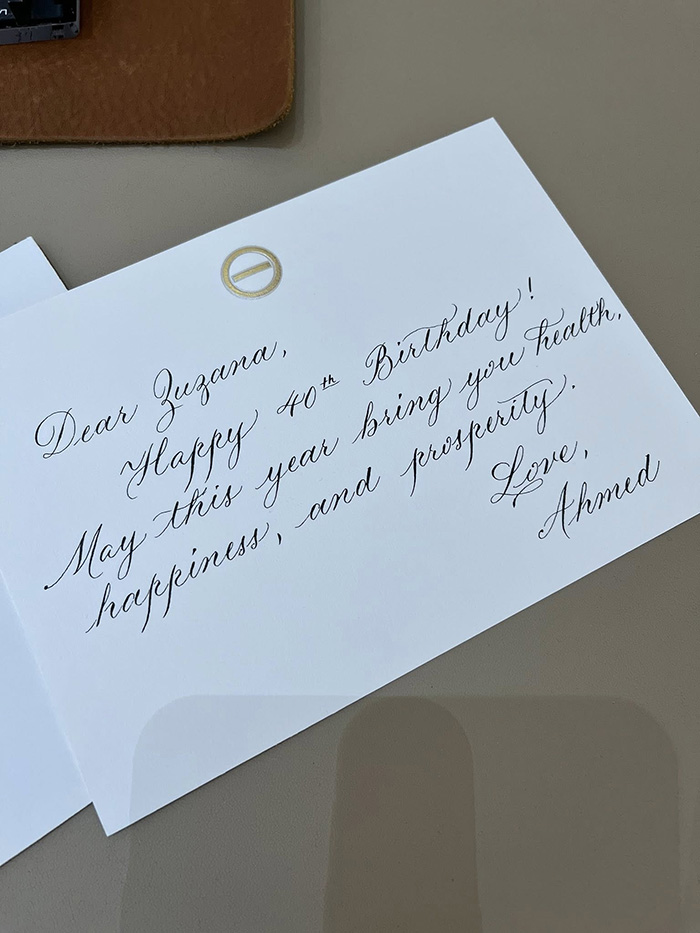 Dear Zuzana,
Happy 40th Birthday!
May this year bring you health,
happiness, and prosperity.
Love,
Ahmed